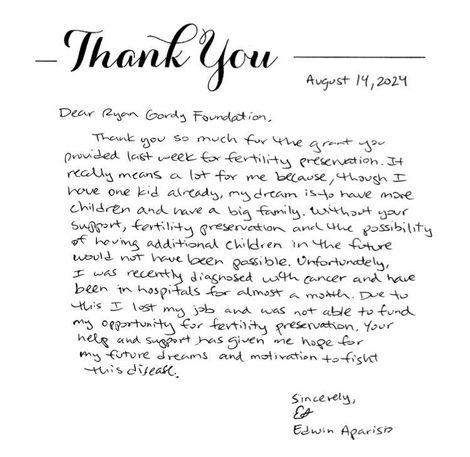 Thank You
August 14, 2024
Dear Ryan Gordy Foundation,
Thank you so much for the grant you
provided last week for fertility preservation. It
really means a lot for me because, though I
have one kid already, my dream is to have more
children and have a big family. Without your
support, fertility preservation and the possibility
of having additional children in the future
would not have been possible. Unfortunately,
I was recently diagnosed with cancer and have
been in hospitals for almost a month. Due to
this I lost my job and was not able to fund
my opportunity for fertility preservation. Your
help and support has given me hope for
my future dreams and motivation to fight
this disease.
Sincerely,
Edwin